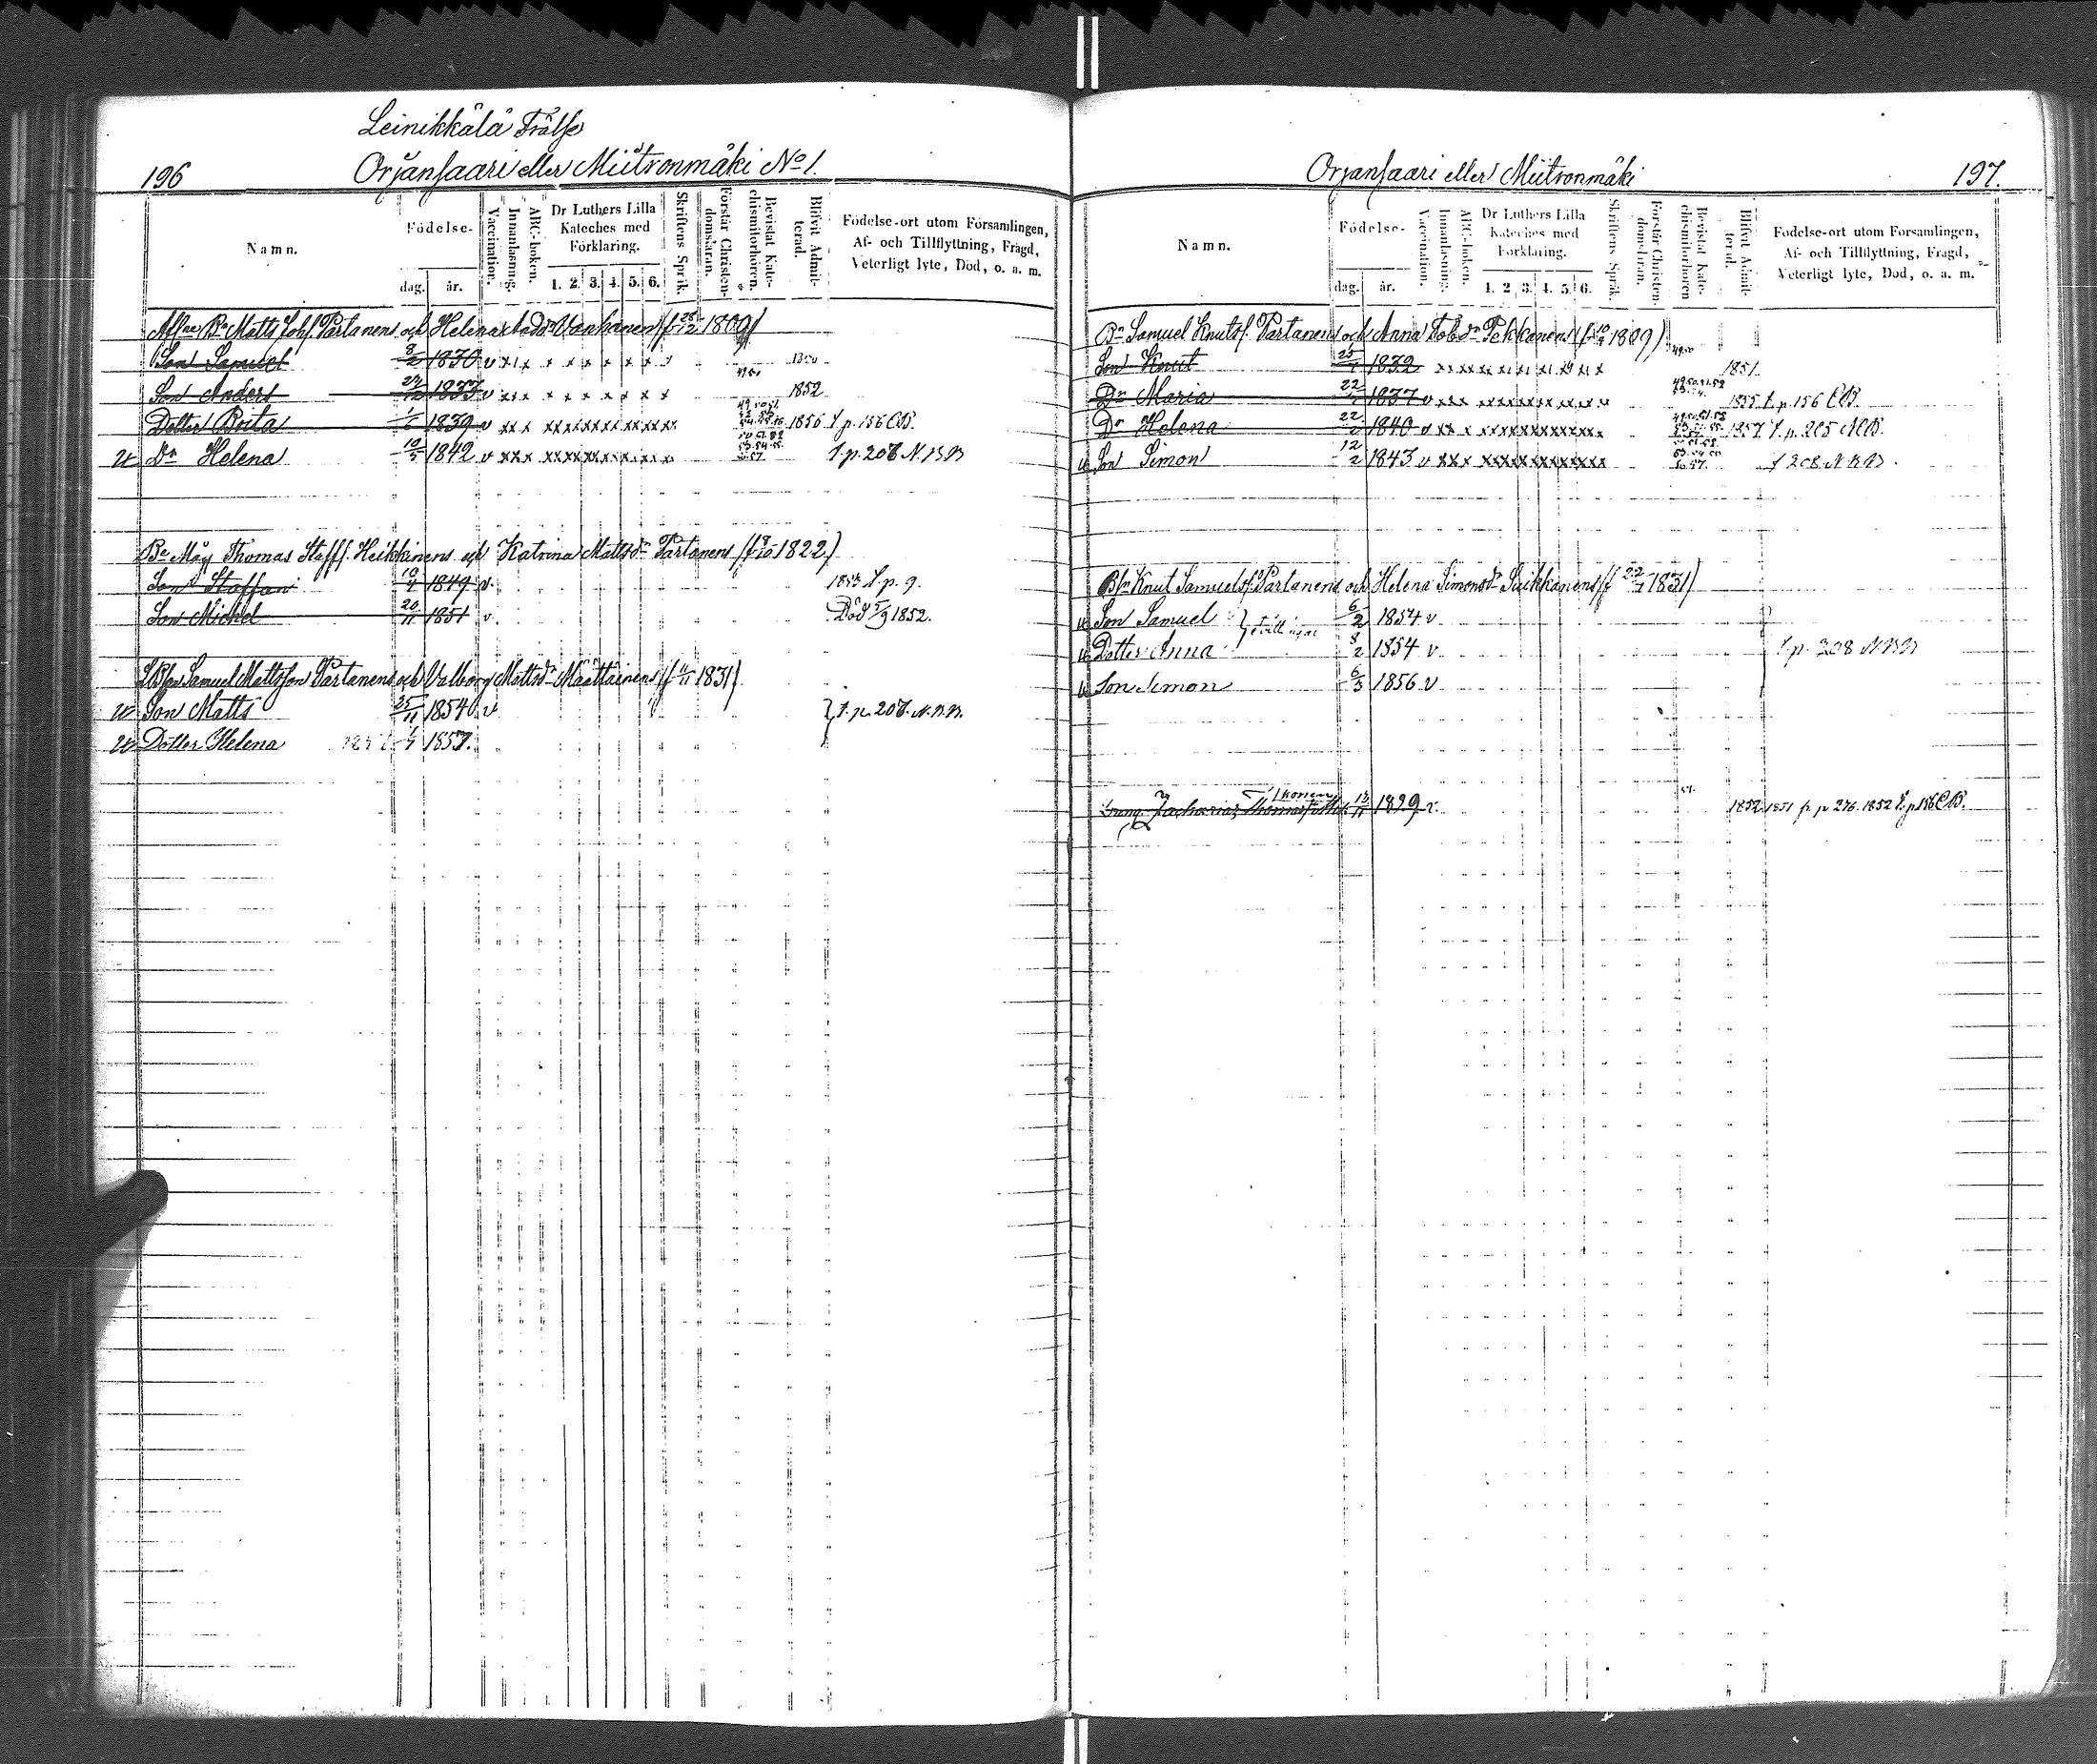 Leinikkälä Frälse
196 Orjansaari eller Miitronmäki No 1.
Namn.
Födelse-
dag. år.
Vaccination.
Innanläsning.
ABC-boken.
Dr Luthers Lilla Kateches med Förklaring.
1. 2. 3. 4. 5. 6.
Skriftens Språk.
Förstår Christendomsläran.
Bevistat Katechismiförhören.
Blifvit Admitterad.
Födelse-ort utom Församlingen, Af- och Tillflyttning, Frägd, Veterligt lyte, Död, o. a. m.
Bn Matts Johs. Partanens och Helena Vanhanens (f 28/12 1809)
Son Samuel 8/2 1830 v x x x x x x x x
Son Anders 1833 v x x x x x x x x 1852
Dotter Brita 1/6 1839 v xxx xxxxxxxxxxxx 1856 t. p. 156 CB.
Dr Helena 10/5 1842 v xxx xxxxxxxxxxxx t. p. 207 N.B.B
Bn Måg Thomas Staffs. Heikkinens och Katrina Mattsdr Partanens (f 8/10 1822)
Son Staffan 10/4 1849 v. t. p. 9.
Son Michel 20/11 1851 v. Död 5/9 1852.
Samuel Mattsson Partanens och Valborg Mattsdr Määttäinens (f 4/11 1831)
Son Matts 25/11 1854 v } t. p. 207. N.B.B.
Dotter Helena 1857.
Orjansaari eller Miitronmäki 197.
Namn.
Födelse-
dag. år.
Vaccination.
Innanläsning.
ABC-boken.
Dr Luthers Lilla Kateches med Förklaring.
1. 2. 3. 4. 5. 6.
Skriftens Språk.
Förstår Christendomsläran.
Bevistat Katechismiförhören
Blifvit Admitterad.
Födelse-ort utom Församlingen, Af- och Tillflyttning, Frägd, Veterligt lyte, Död, o. a. m.
Bn Samuel Knutss. Partanens och Anna Tobdr Pekkanens (f 1809)
Son Knut 1832 1851.
Dr Maria 22 1837 v xxx xxxxxxxxxxxx 1855 t. p. 156 CB.
Dr Helena 22 1840 v xx x xxxxxxxxxxxx 1857 t. p. 205 NCB.
Son Simon 12/2 1843 v xxx xxxxxxxxxxxx t 208 N.B.B.
Knut Samuelss. Partanens och Helena Simonsdr Suikkanens (f 22/7 1831)
Son Samuel } tvillingar 6/2 1854 v
Dotter Anna 8/2 1854 v t. p. 208 N.B.B
Son Simon 6/3 1856 v
Zacharias Thomass. 1829 v. 1852 1851 fr. p 276. 1852 t. p 156 CB.